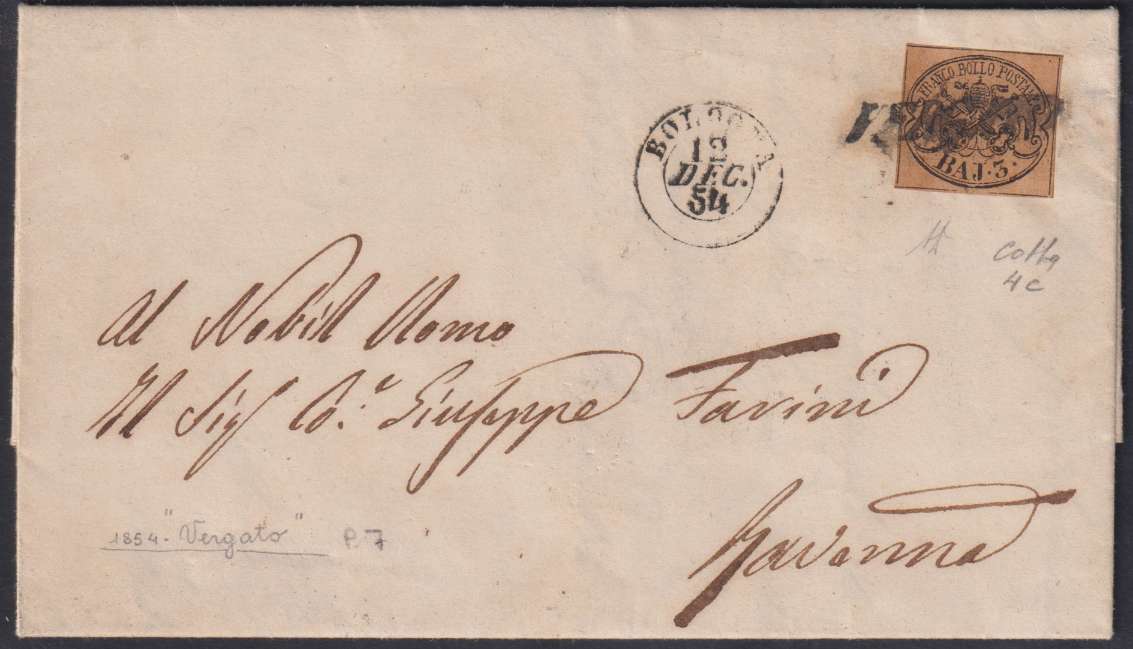 FRANCO BOLLO POSTALE
BAJ. 3.
BOLOGNA
12
DEC.
54
4c
Al Nobil Uomo
Il Sig Co.e Giuseppe Favini
Ravenna
1854 - "Vergato" P. 7